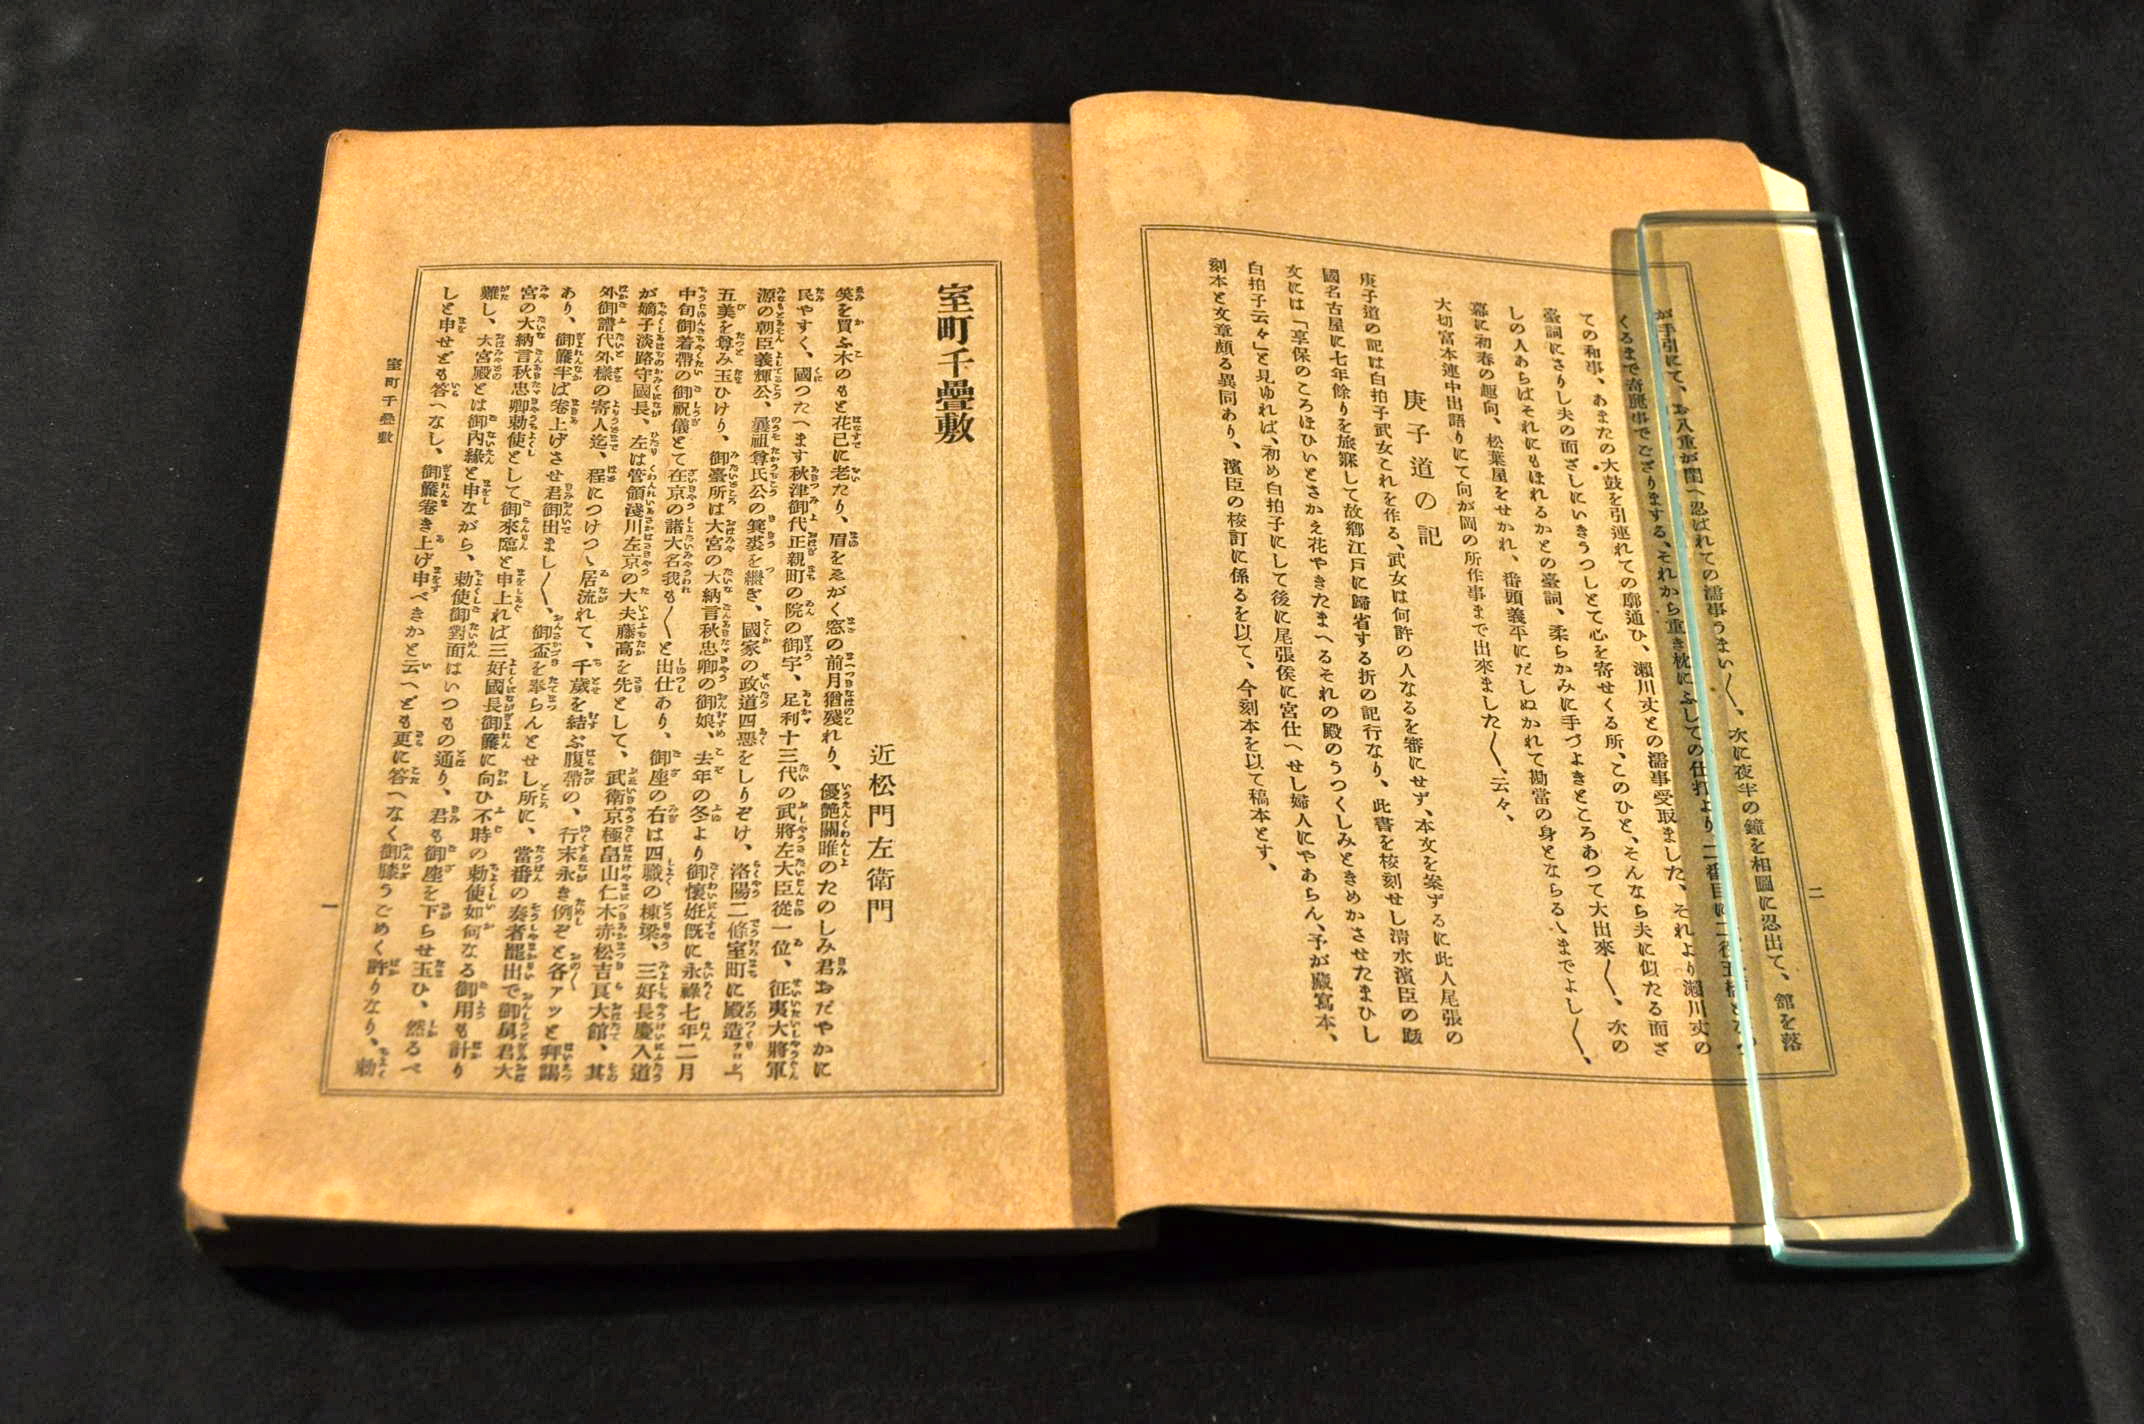 が手引にて、お八重が閨へ忍ばれての濡事うまい〳〵、次に夜半の鐘を相圖に忍出て、館を落
くるまで奇麗事でござりまする、それから重き枕にふしての仕打より二番目は二役
ての和事、あまたの大鼓を引連れての廓通ひ、瀨川丈との濡事受取ました、それより瀨川丈の
臺詞にさりし夫の面ざしにいきうつしとて心を寄せくる所、このひと、そんなら夫に似たる面ざ
しの人あらばそれにもほれるかとの臺詞、柔らかみに手づよきところあつて大出來〳〵、次の
幕に初春の趣向、松葉屋をせかれ、番頭義平にだしぬかれて勘當の身とならるゝまでよし〳〵、
大切富本連中出語りにて向が岡の所作事まで出來ました〳〵、云々、
庚子道の記
庚子道の記は白拍子武女これを作る、武女は何許の人なるを審にせず、本文を案ずるに此人尾張の
國名古屋に七年餘りを旅寐して故鄕江戸に歸省する折の記行なり、此書を校刻せし淸水濱臣の跋
文には「享保のころほひいとさかえ花やきたまへるそれの殿のうつくしみときめかさせたまひし
白拍子云々」と見ゆれば、初め白拍子にして後に尾張侯に宮仕へせし婦人にやあらん、予が藏寫本、
刻本と文章頗る異同あり、濱臣の校訂に係るを以て、今刻本を以て稿本とす、
二
室町千疊敷
近松門左衛門
笑を買ふ木のもと花已に老たり、眉をゑがく窓の前月猶殘れり、優艶關雎のたのしみ君おだやかに
民やすく、國つたへます秋津御代正親町の院の御宇、足利十三代の武將左大臣從一位、征夷大將軍
源の朝臣義輝公、曩祖尊氏公の箕裘を繼ぎ、國家の政道四惡をしりぞけ、洛陽二條室町に殿造
五美を尊み玉ひけり、御臺所は大宮の大納言秋忠卿の御娘、去年の冬より御懷姙既に永祿七年二月
中旬御着帶の御祝儀とて在京の諸大名我も〳〵と出仕あり、御座の右は四職の棟梁、三好長慶入道
が嫡子淡路守國長、左は管領淺川左京の大夫藤高を先として、武衛京極畠山仁木赤松吉良大館、其
外御譜代外樣の寄人迄、程につけつゝ居流れて、千歲を結ぶ腹帶の、行末永き例ぞと各アッと拜謁
あり、御簾半ば卷上げさせ君御出まし〳〵、御盃を擧らんとせし所に、當番の奏者罷出で御舅君大
宮の大納言秋忠卿勅使として御來臨と申上れば三好國長御簾に向ひ不時の勅使如何なる御用も計り
難し、大宮殿とは御內緣と申ながら、勅使御對面はいつもの通り、君も御座を下らせ玉ひ、然るべ
しと申せども答へなし、御簾卷き上げ申べきかと云へども更に答へなく御膝うごめく許りなり、勅
室町千疊敷
一